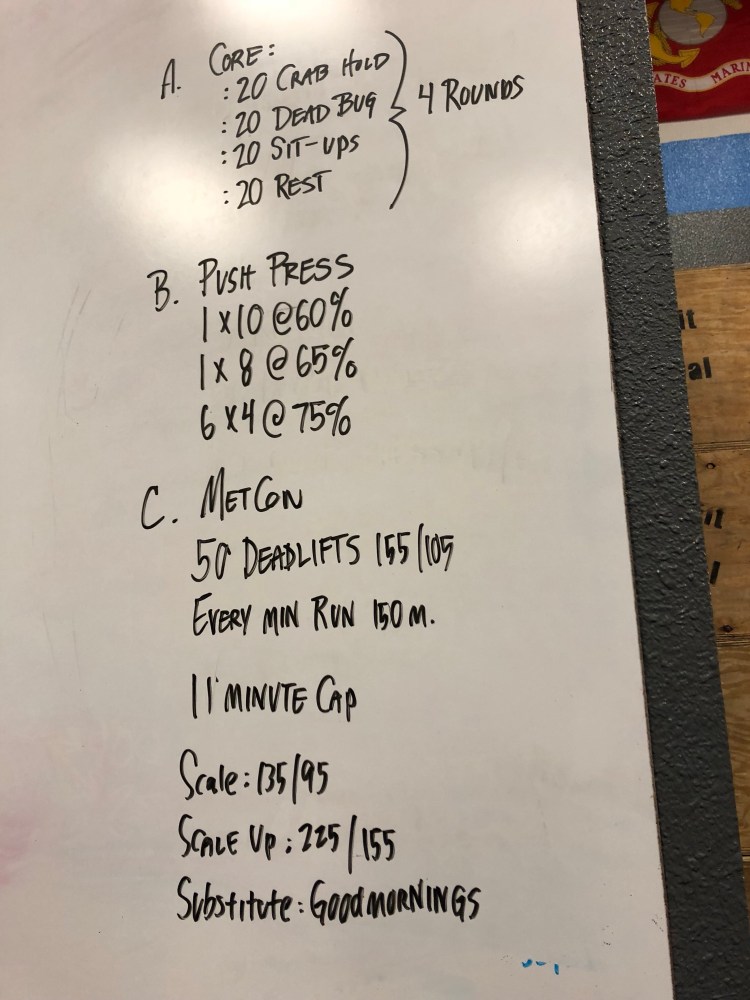 A. CORE:
:20 CRAB HOLD
:20 DEAD BUG
:20 SIT-UPS
:20 REST
4 ROUNDS
B. PUSH PRESS
1 X 10 @ 60%
1 X 8 @ 65%
6 X 4 @ 75%
C. METCON
50 DEADLIFTS 155/105
EVERY MIN RUN 150 M.
11 MINUTE CAP
Scale: 135/95
SCALE UP: 225/155
Substitute: GOODMORNINGS
ATES MARIN
it
al
it
l